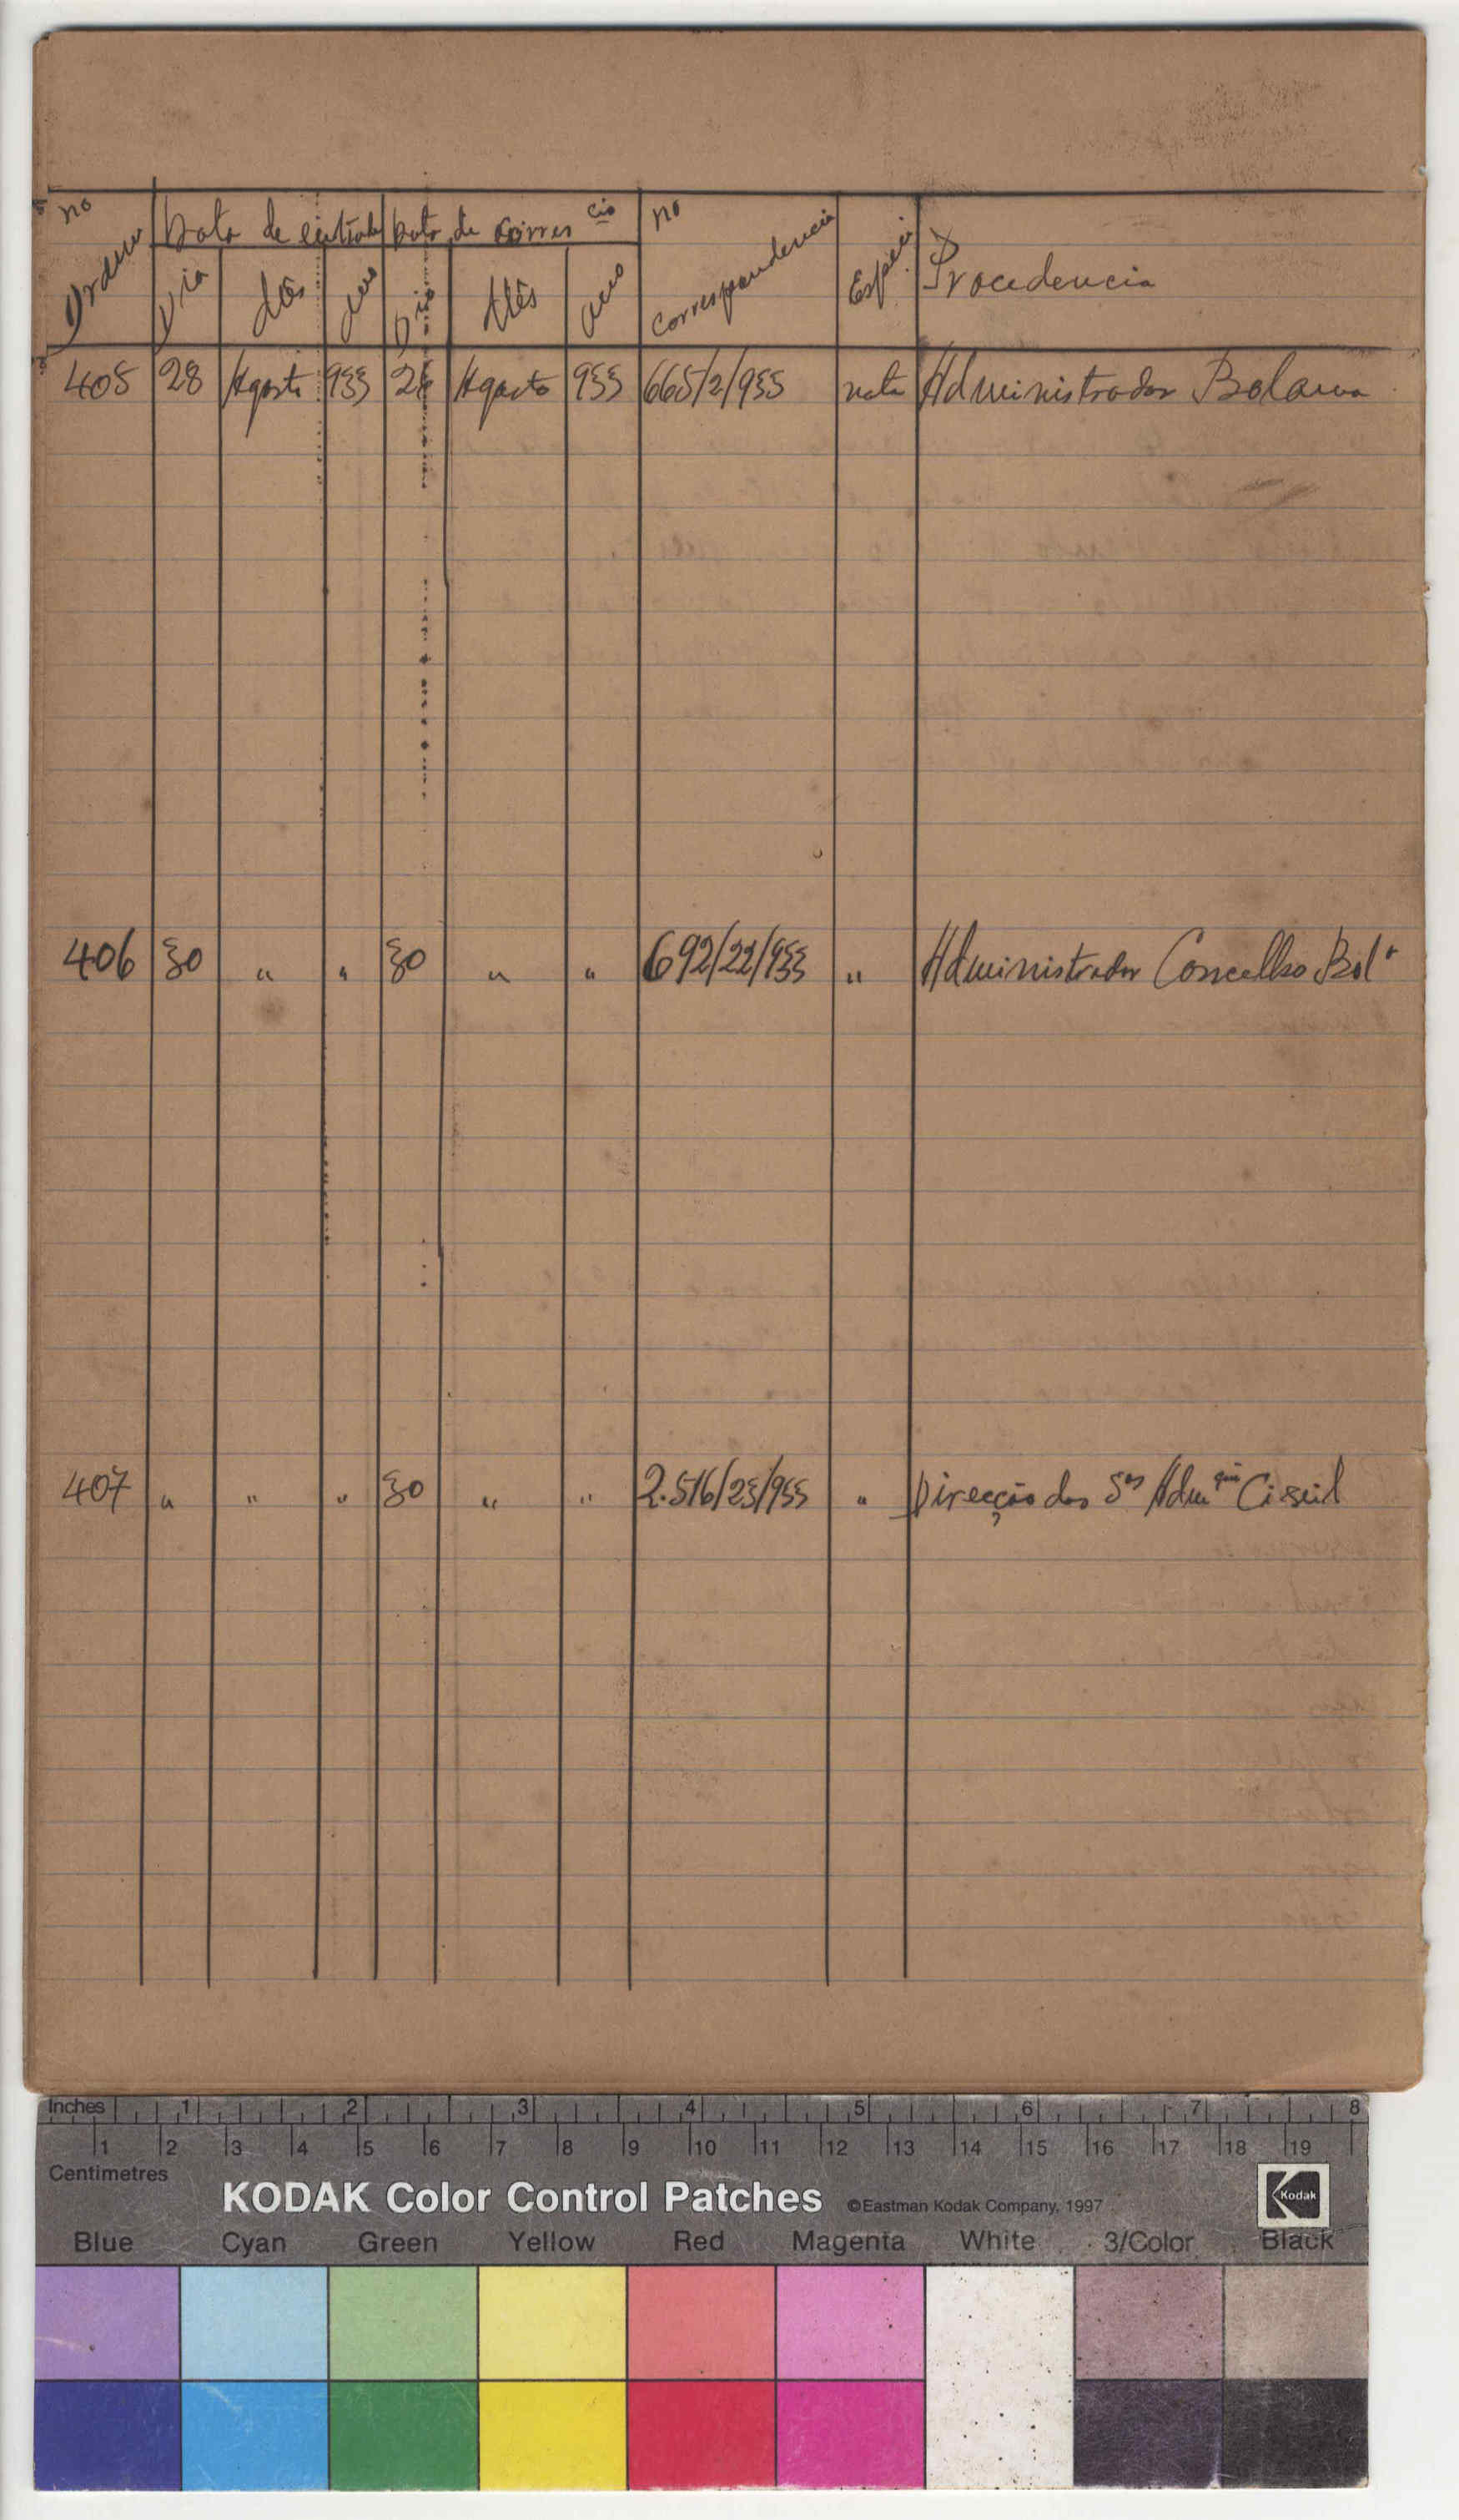 no Ordem Data de entrada Data de corres cia no correspondencia Especie Procedencia
Dia Mês ano Dia Mês ano
405 28 Agosto 933 26 Agosto 933 665/2/933 nota Administrador Bolama
406 30 " " 30 " " 692/22/933 " Administrador Concelho Bol a
407 " " " 30 " " 2.516/23/933 " Direcção dos Sos Adm Civil
Inches 1 2 3 4 5 6 7 8
1 2 3 4 5 6 7 8 9 10 11 12 13 14 15 16 17 18 19
Centimetres
KODAK Color Control Patches ©Eastman Kodak Company, 1997 Kodak
Blue Cyan Green Yellow Red Magenta White 3/Color Black